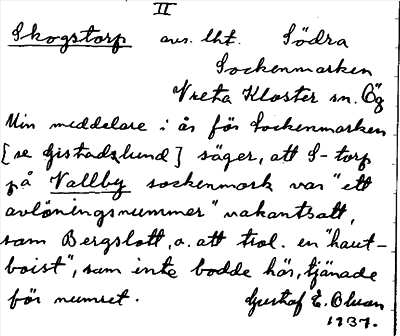 II
Skogstorp avs. lht. Södra
Sockenmarken
Vreta Kloster sn. Ög
Min meddelare i år för Sockenmarken
[se Gistads lund] säger, att S-torp
på Vallby sockenmark var "ett
avlöningsnummer" vakantsatt,
som Bergslott, o. att trol. en "haut-
boist", som inte bodde här, tjänade
för numret. Gustaf E. Bluan
1937.